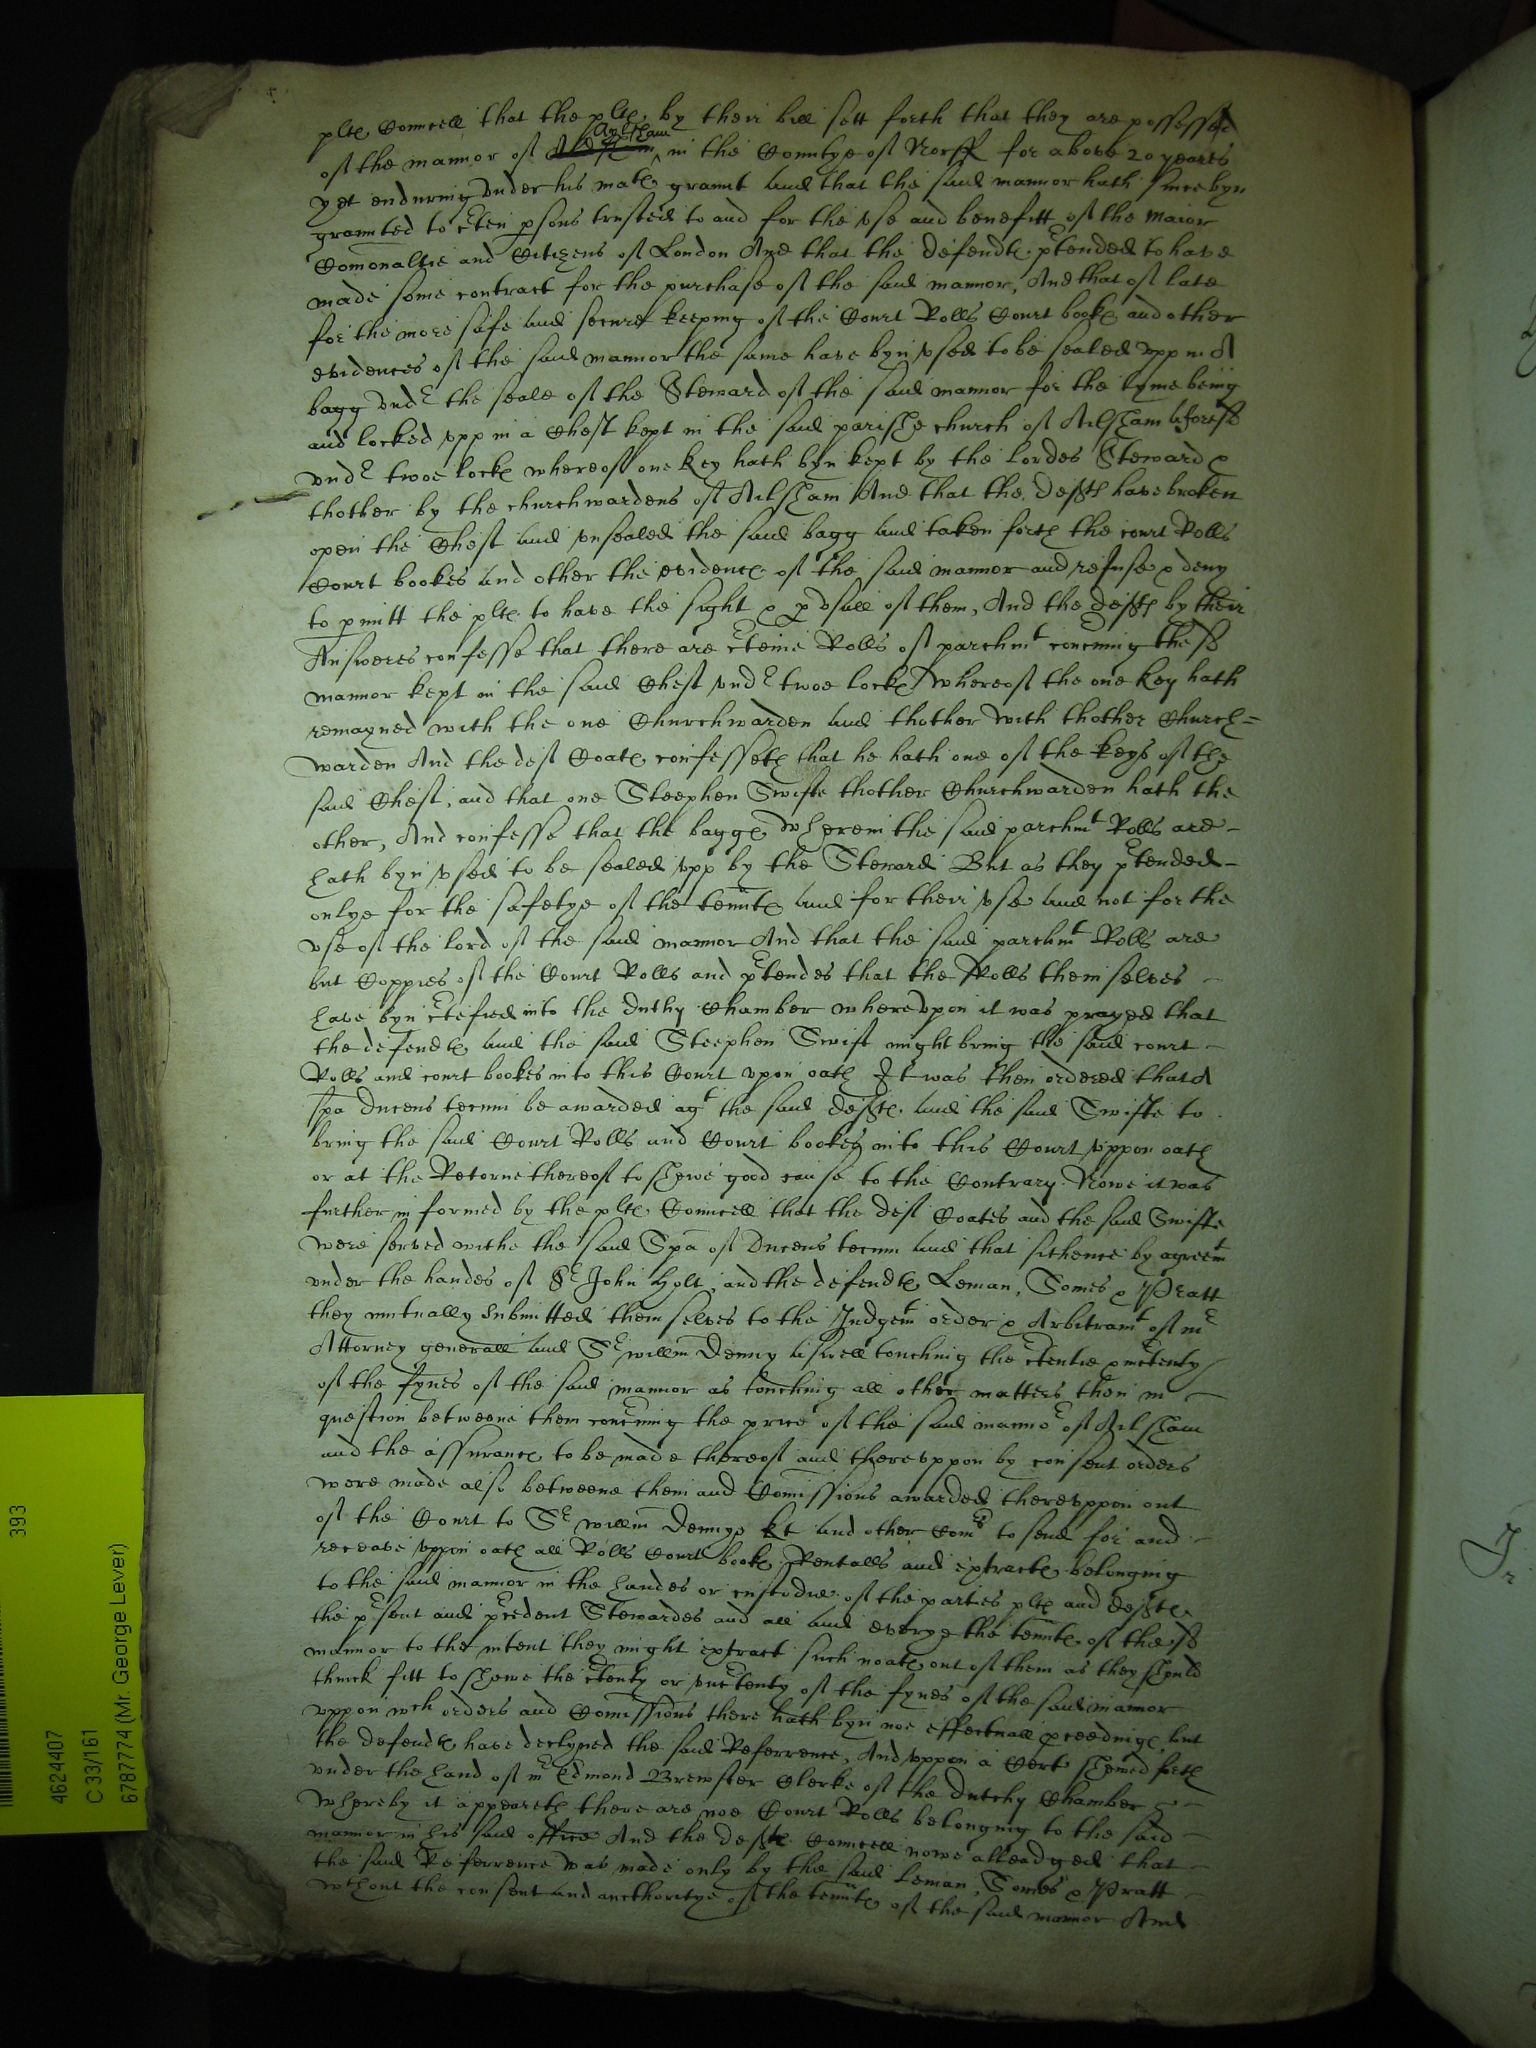 plts Councell that the plts by their bill sett forth that they are possessed
of the mannor of Aylsham in the Countye of Norff for above 20 yeares
yet enduring under his mats graunt and that the said mannor hath since byn
graunted to cten psons trusted to and for the use and benefitt of the Maior
Comonaltie and Citizens of London And that the defendts ptended to have
made some contract for the purchase of the said mannor, And that of late
for the more safe and secure keeping of the Court Rolls Court books and other
evidences of the said mannor the same have byn used to be sealed upp in A
bagg undr the seale of the Steward of the said mannor for the tyme being
and locked upp in a Chest kept in the said parishe church of Ailsham aforesd
undr twoe locks whereof one key hath byn kept by the lordes Steward &
thother by the churchwardens of Ailsham And that the defts have broken
open the Chest and unsealed the said bagg and taken forth the court Rolls
Court bookes and other the evidencs of the said mannor and refuse & deny
to pmitt the plts to have the sight & pusall of them, And the defts by their
Answeres confesse that there are cteine Rolls of parchmt concning the sd
mannor kept in the said Chest undr twoe locks whereof the one key hath
remayned with the one Churchwarden and thother with thother Church=
warden And the deft Coats confesseth that he hath one of the keys of the
said Chest, and that one Steephen Swifte thother Churchwarden hath the
other, And confesse that the baggs wherein the said parchmt Rolls are
hath byn used to be sealed upp by the Steward But as they ptended
onlye for the safetye of the tennts and for their use and not for the
use of the lord of the said mannor And that the said parchmt Rolls are
but Coppies of the Court Rolls and ptendes that the Rolls themselves
have byn ctefied into the Duthy Chamber whereupon it was prayed that
the defendts and the said Steephen Swift might bring the said court
Rolls and court bookes into this Court upon oath It was then ordered that A
spa Ducens tecum be awarded agt the said defts and the said Swifte to
bring the said Court Rolls and Court bookes into this Court uppon oath
or at the Retorne thereof to shewe good cause to the Contrary. Nowe it was
further informed by the plts Councell that the deft Coates and the said Swifte
were served withe the said Spa of Ducens tecum and that sithence by agreemt
under the handes of Sr John Holt, and the defendts Leman, Somes & Pratt
they mutually submitted themselves to the Judgemt order & Arbitramt of mr
Attorney generall and Sr willm Denny aswell touching the ctentie & inctenty
of the fynes of the said mannor as touching all other matters then in
question betweene them concning the price of the said mannor of Ailsham
and the assurancs to be made thereof and thereuppon by consent orders
were made also betweene them and Comissions awarded thereuppon out
of the Court to Sr willm Dennye kt and other comrs to send for and
receave uppon oath all Rolls Court books Rentalls and extracts belonging
to the said mannor in the handes or custodie of the parties plts and defts
the psent and pcedent Stewardes and all and everye the tennts of the sd
mannor to the intent they might extract such noats out of them as they should
thinck fitt to shewe the ctenty or unctenty of the fynes of the said mannor
uppon wch orders and Comissions there hath byn noe effectuall pceedings, but
the defendts have declyned the said Referrence, And uppon a Cert shewed forth
under the hand of mr Edmond Brewster Clerke of the Dutchy Chamber
whereby it appeareth there are noe Court Rolls belonging to the said
mannor in his said office And the defts Councell nowe alleadged that
the said Referrence was made only by the said Leman, Somes & Pratt
wthout the consent and aucthoritye of the tennts of the said mannor And
393
4624407
C 33/161
6787774 (Mr. George Lever)